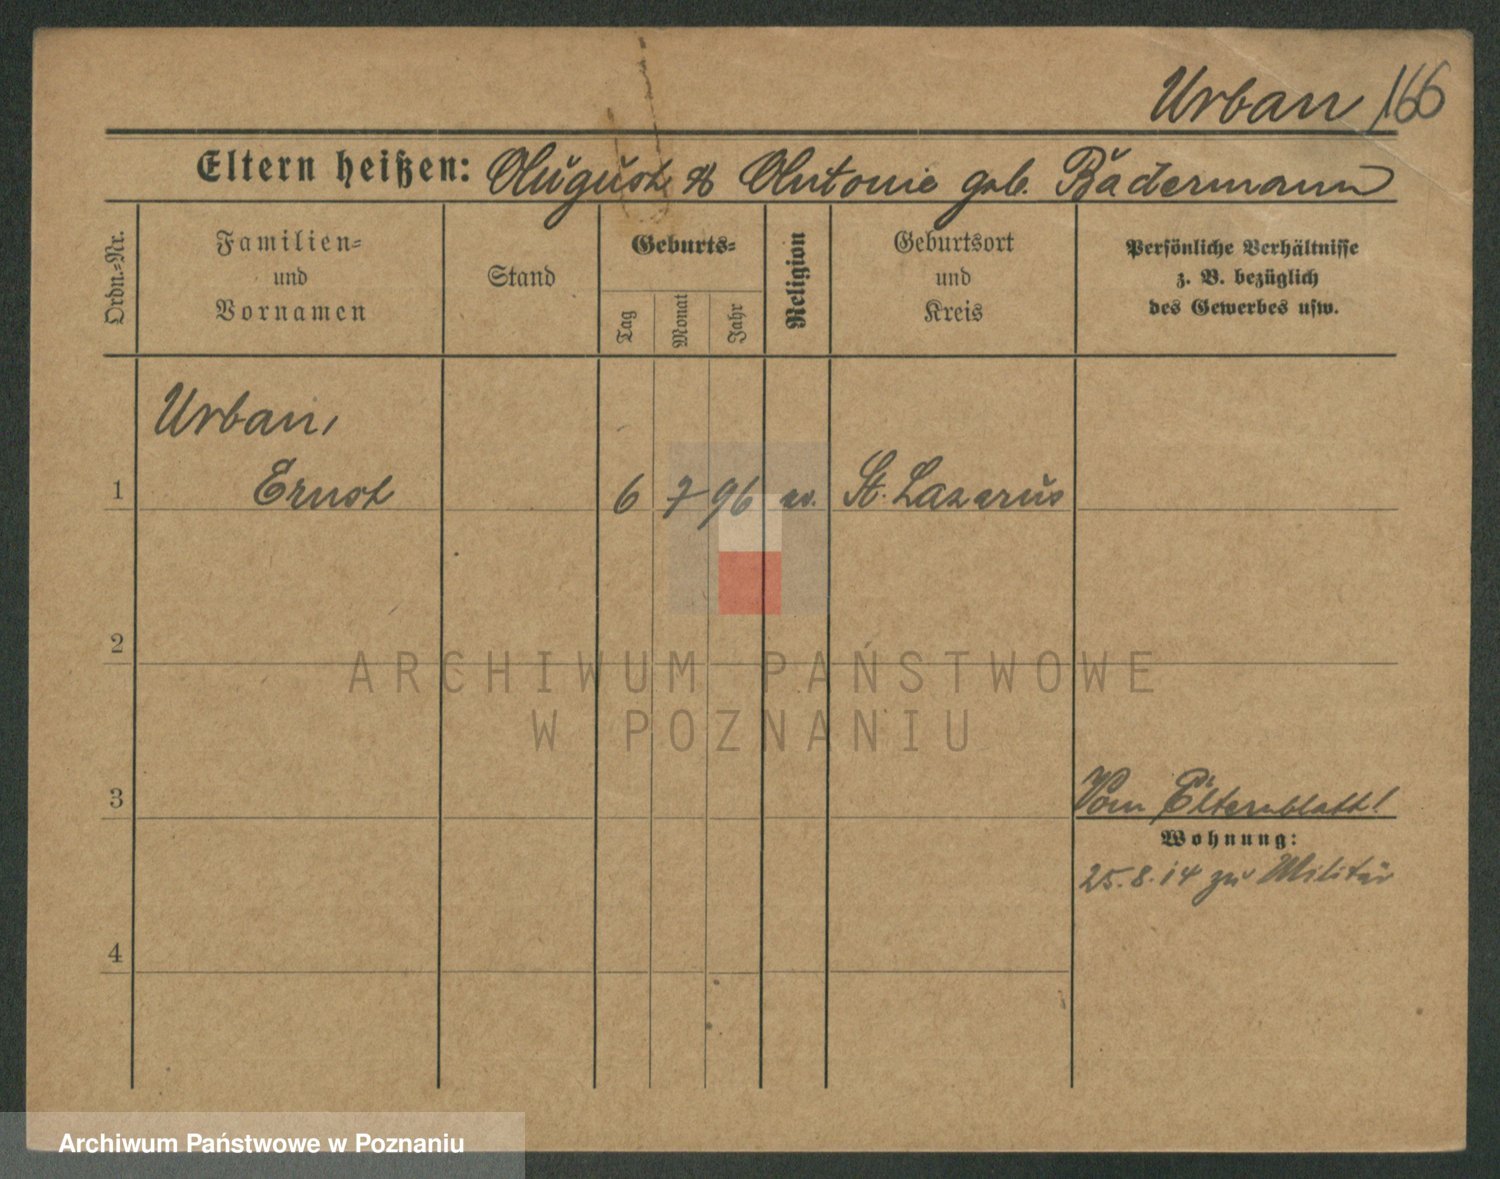 Urban 166
Eltern heißen: August & Antonie geb. Badermann
Ordn.=Nr.
Familien=
und
Vornamen
Stand
Geburts=
Tag
Monat
Jahr
Religion
Geburtsort
und
Kreis
Persönliche Verhältnisse
z. B. bezüglich
des Gewerbes usw.
Urban,
1 Ernst 6 7 96 ev. St. Lazarus
2
ARCHIWUM PAŃSTWOWE
W POZNANIU
3 Vom Elternblatt!
Wohnung:
25.8.14 zu Militär
4
Archiwum Państwowe w Poznaniu